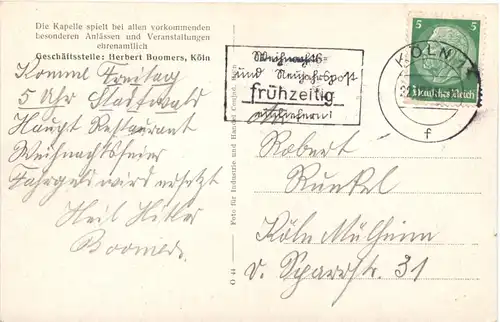 Die Kapelle spielt bei allen vorkommenden
besonderen Anlässen und Veranstaltungen
ehrenamtlich
Geschäftsstelle: Herbert Boomers, Köln
Komme Freitag
5 Uhr Stadtwald
Haupt Restaurant
Weihnachtsfeier
Fahrgeld wird ersetzt
Heil Hitler
Boomers
Foto für Industrie und Handel
O 44
Weihnachts-
und Neujahrspost
frühzeitig
einliefern!
KÖLN
f
5 5
Deutsches Reich
Robert
Runkel
Köln Mülheim
v. Sparrstr. 31